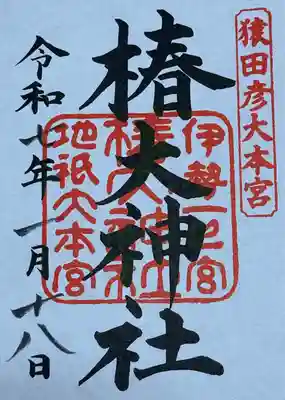 猿田彦大本宮
椿大神社
伊勢一之宮
椿大神社
地祇大本宮
令和七年一月十八日